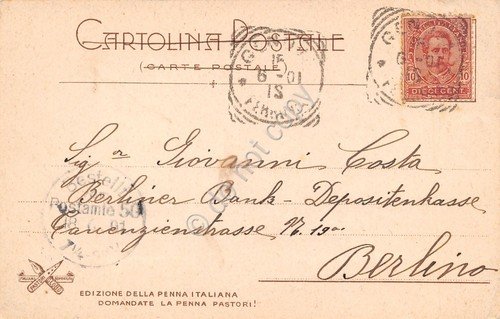 CARTOLINA POSTALE
(CARTE POSTALE)
15
6-01
1S
DIECI CENT.
10 10
Sig.or Giovanni Costa
Berliner Bank - Depositenkasse
Tauenzienstrasse N. 19a
Berlino
Bestellt
Postamte 50
EDIZIONE DELLA PENNA ITALIANA
DOMANDATE LA PENNA PASTORI!
© do not copy